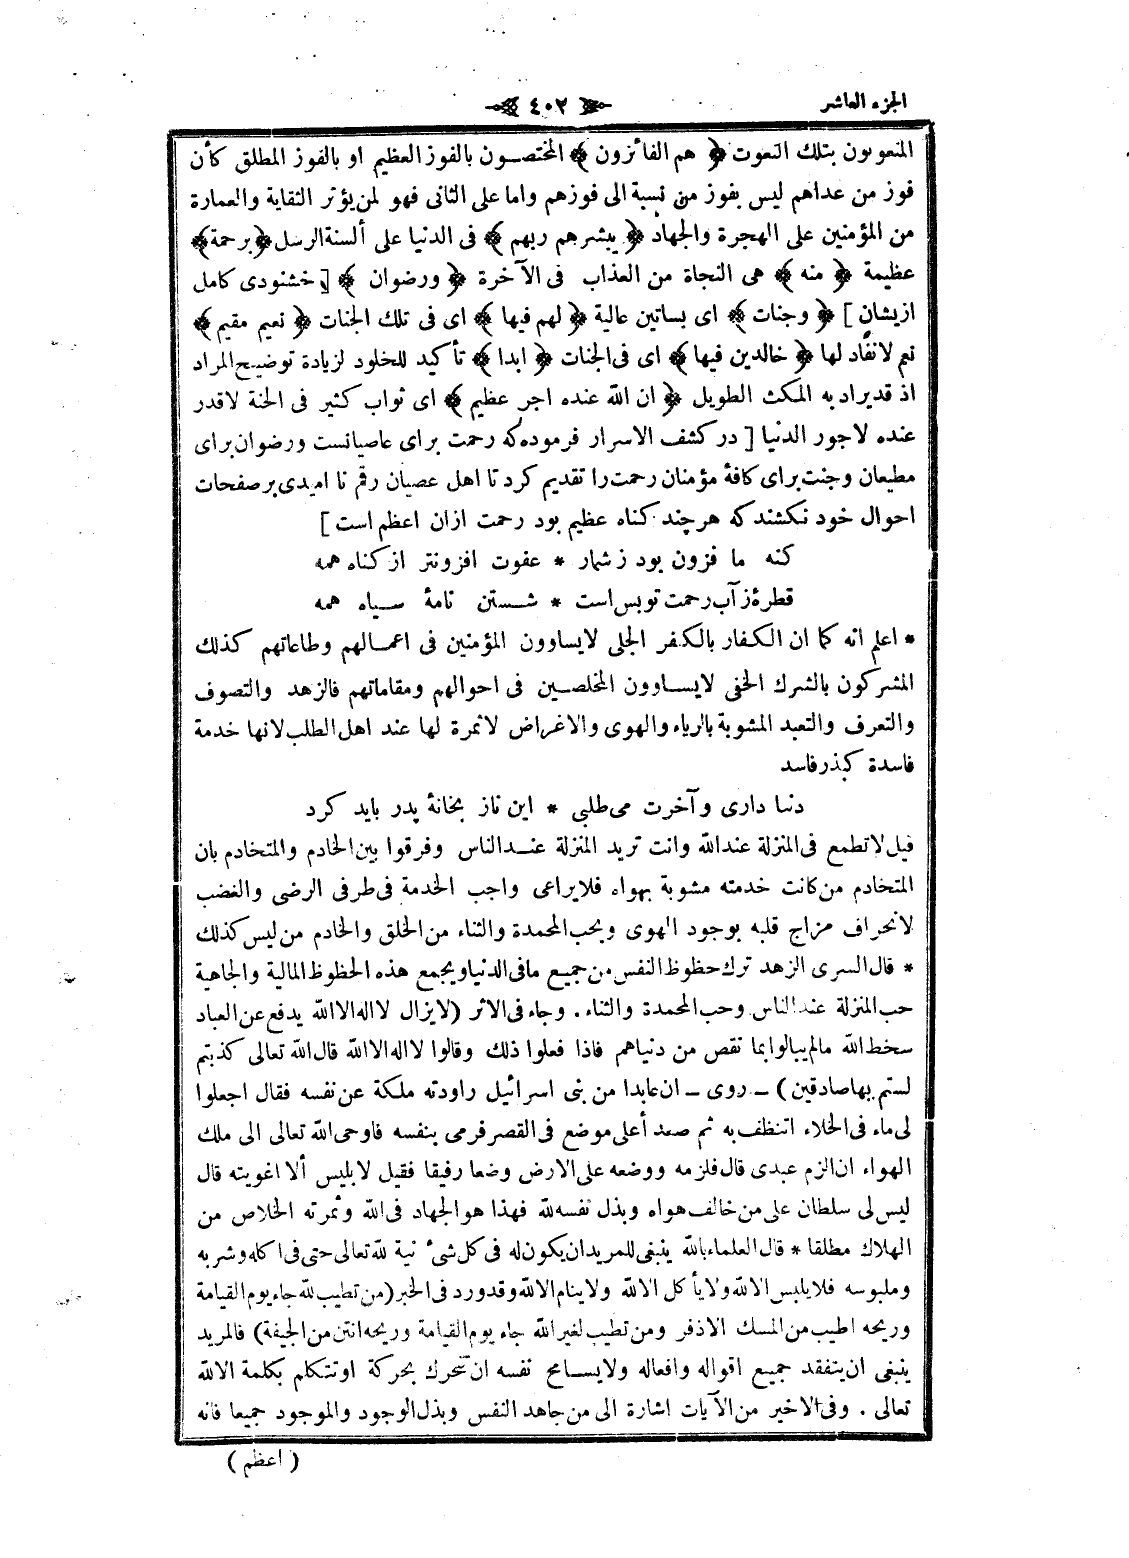 الجزء العاشر
٤٠٢
المنعوتون بتلك النعوت ﴿ هم الفائزون ﴾ المختصون بالفوز العظيم او بالفوز المطلق كأن
فوز من عداهم ليس بفوز من نسبة الى فوزهم واما على الثانى فهو لمن يؤثر السقاية والعمارة
من المؤمنين على الهجرة والجهاد ﴿ يبشرهم ربهم ﴾ فى الدنيا على ألسنة الرسل ﴿ برحمة ﴾
عظيمة ﴿ منه ﴾ هى النجاة من العذاب فى الآخرة ﴿ ورضوان ﴾ [ خشنودى كامل
ازيشان ] ﴿ وجنات ﴾ اى بساتين عالية ﴿ لهم فيها ﴾ اى فى تلك الجنات ﴿ نعيم مقيم ﴾
نعم لا نفاد لها ﴿ خالدين فيها ﴾ اى فى الجنات ﴿ ابدا ﴾ تأكيد للخلود لزيادة توضيح المراد
اذ قد يراد به المكث الطويل ﴿ ان الله عنده اجر عظيم ﴾ اى ثواب كثير فى الجنة لا قدر
عنده لاجور الدنيا [ در كشف الاسرار فرموده كه رحمت براى عاصيانست ورضوان براى
مطيعان وجنت براى كافهٔ مؤمنان رحمت را تقديم كرد تا اهل عصيان رقم نا اميدى بر صفحات
احوال خود نكشند كه هر چند كناه عظيم بود رحمت ازان اعظم است ]
كنه ما فزون بود ز شمار * عفوت افزونتر از كناه همه
قطرهٔ ز آب رحمت تو بس است * شستن نامهٔ سياه همه
* اعلم انه كما ان الكفار بالكفر الجلى لا يساوون المؤمنين فى اعمالهم وطاعاتهم كذلك
المشركون بالشرك الخفى لا يساوون المخلصين فى احوالهم ومقاماتهم فالزهد والتصوف
والتعرف والتعبد المشوبة بالرياء والهوى والاغراض لا ثمرة لها عند اهل الطلب لانها خدمة
فاسدة كبذر فاسد
دنيا دارى وآخرت مى طلبى * اين ناز بخانهٔ پدر بايد كرد
قيل لا تطمع فى المنزلة عند الله وانت تريد المنزلة عند الناس وفرقوا بين الخادم والمتخادم بان
المتخادم من كانت خدمته مشوبة بهواه فلا يراعى واجب الخدمة فى طرفى الرضى والغضب
لانحراف مزاج قلبه بوجود الهوى وبحب المحمدة والثناء من الخلق والخادم من ليس كذلك
* قال السرى الزهد ترك حظوظ النفس من جميع ما فى الدنيا ويجمع هذه الحظوظ المالية والجاهية
حب المنزلة عند الناس وحب المحمدة والثناء . وجاء فى الاثر (لا يزال لا اله الا الله يدفع عن العباد
سخط الله ما لم يبالوا بما نقص من دنياهم فاذا فعلوا ذلك وقالوا لا اله الا الله قال الله تعالى كذبتم
لستم بها صادقين ) ـ روى ـ ان عابدا من بنى اسرائيل راودته ملكة عن نفسه فقال اجعلوا
لى ماء فى الخلاء اتنظف به ثم صعد أعلى موضع فى القصر فرمى بنفسه فاوحى الله تعالى الى ملك
الهواء ان الزم عبدى قال فلزمه ووضعه على الارض وضعا رفيقا فقيل لابليس ألا اغويته قال
ليس لى سلطان على من خالف هواه وبذل نفسه لله فهذا هو الجهاد فى الله وثمرته الخلاص من
الهلاك مطلقا * قال العلماء بالله ينبغى للمريد ان يكون له فى كل شىء نية لله تعالى حتى فى اكله وشربه
وملبوسه فلا يلبس الا لله ولا يأكل الا لله ولا ينام الا لله وقد ورد فى الخبر (من تطيب لله جاء يوم القيامة
وريحه اطيب من المسك الاذفر ومن تطيب لغير الله جاء يوم القيامة وريحه انتن من الجيفة) فالمريد
ينبغى ان يتفقد جميع اقواله وافعاله ولا يسامح نفسه ان تتحرك بحركة او تتكلم بكلمة الا لله
تعالى . وفى الاخير من الآيات اشارة الى من جاهد النفس وبذل الوجود والموجود جميعا فانه
( اعظم )